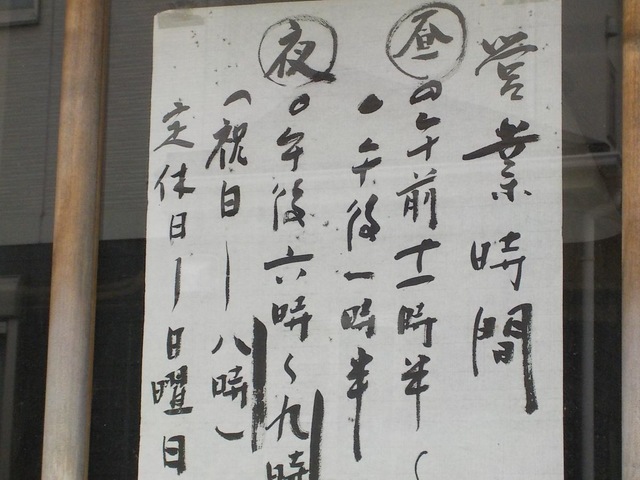 営業時間
昼 ○午前十一時半〜
●午後一時半
夜 ○午後六時〜九時
（祝日ー八時）
定休日ー日曜日